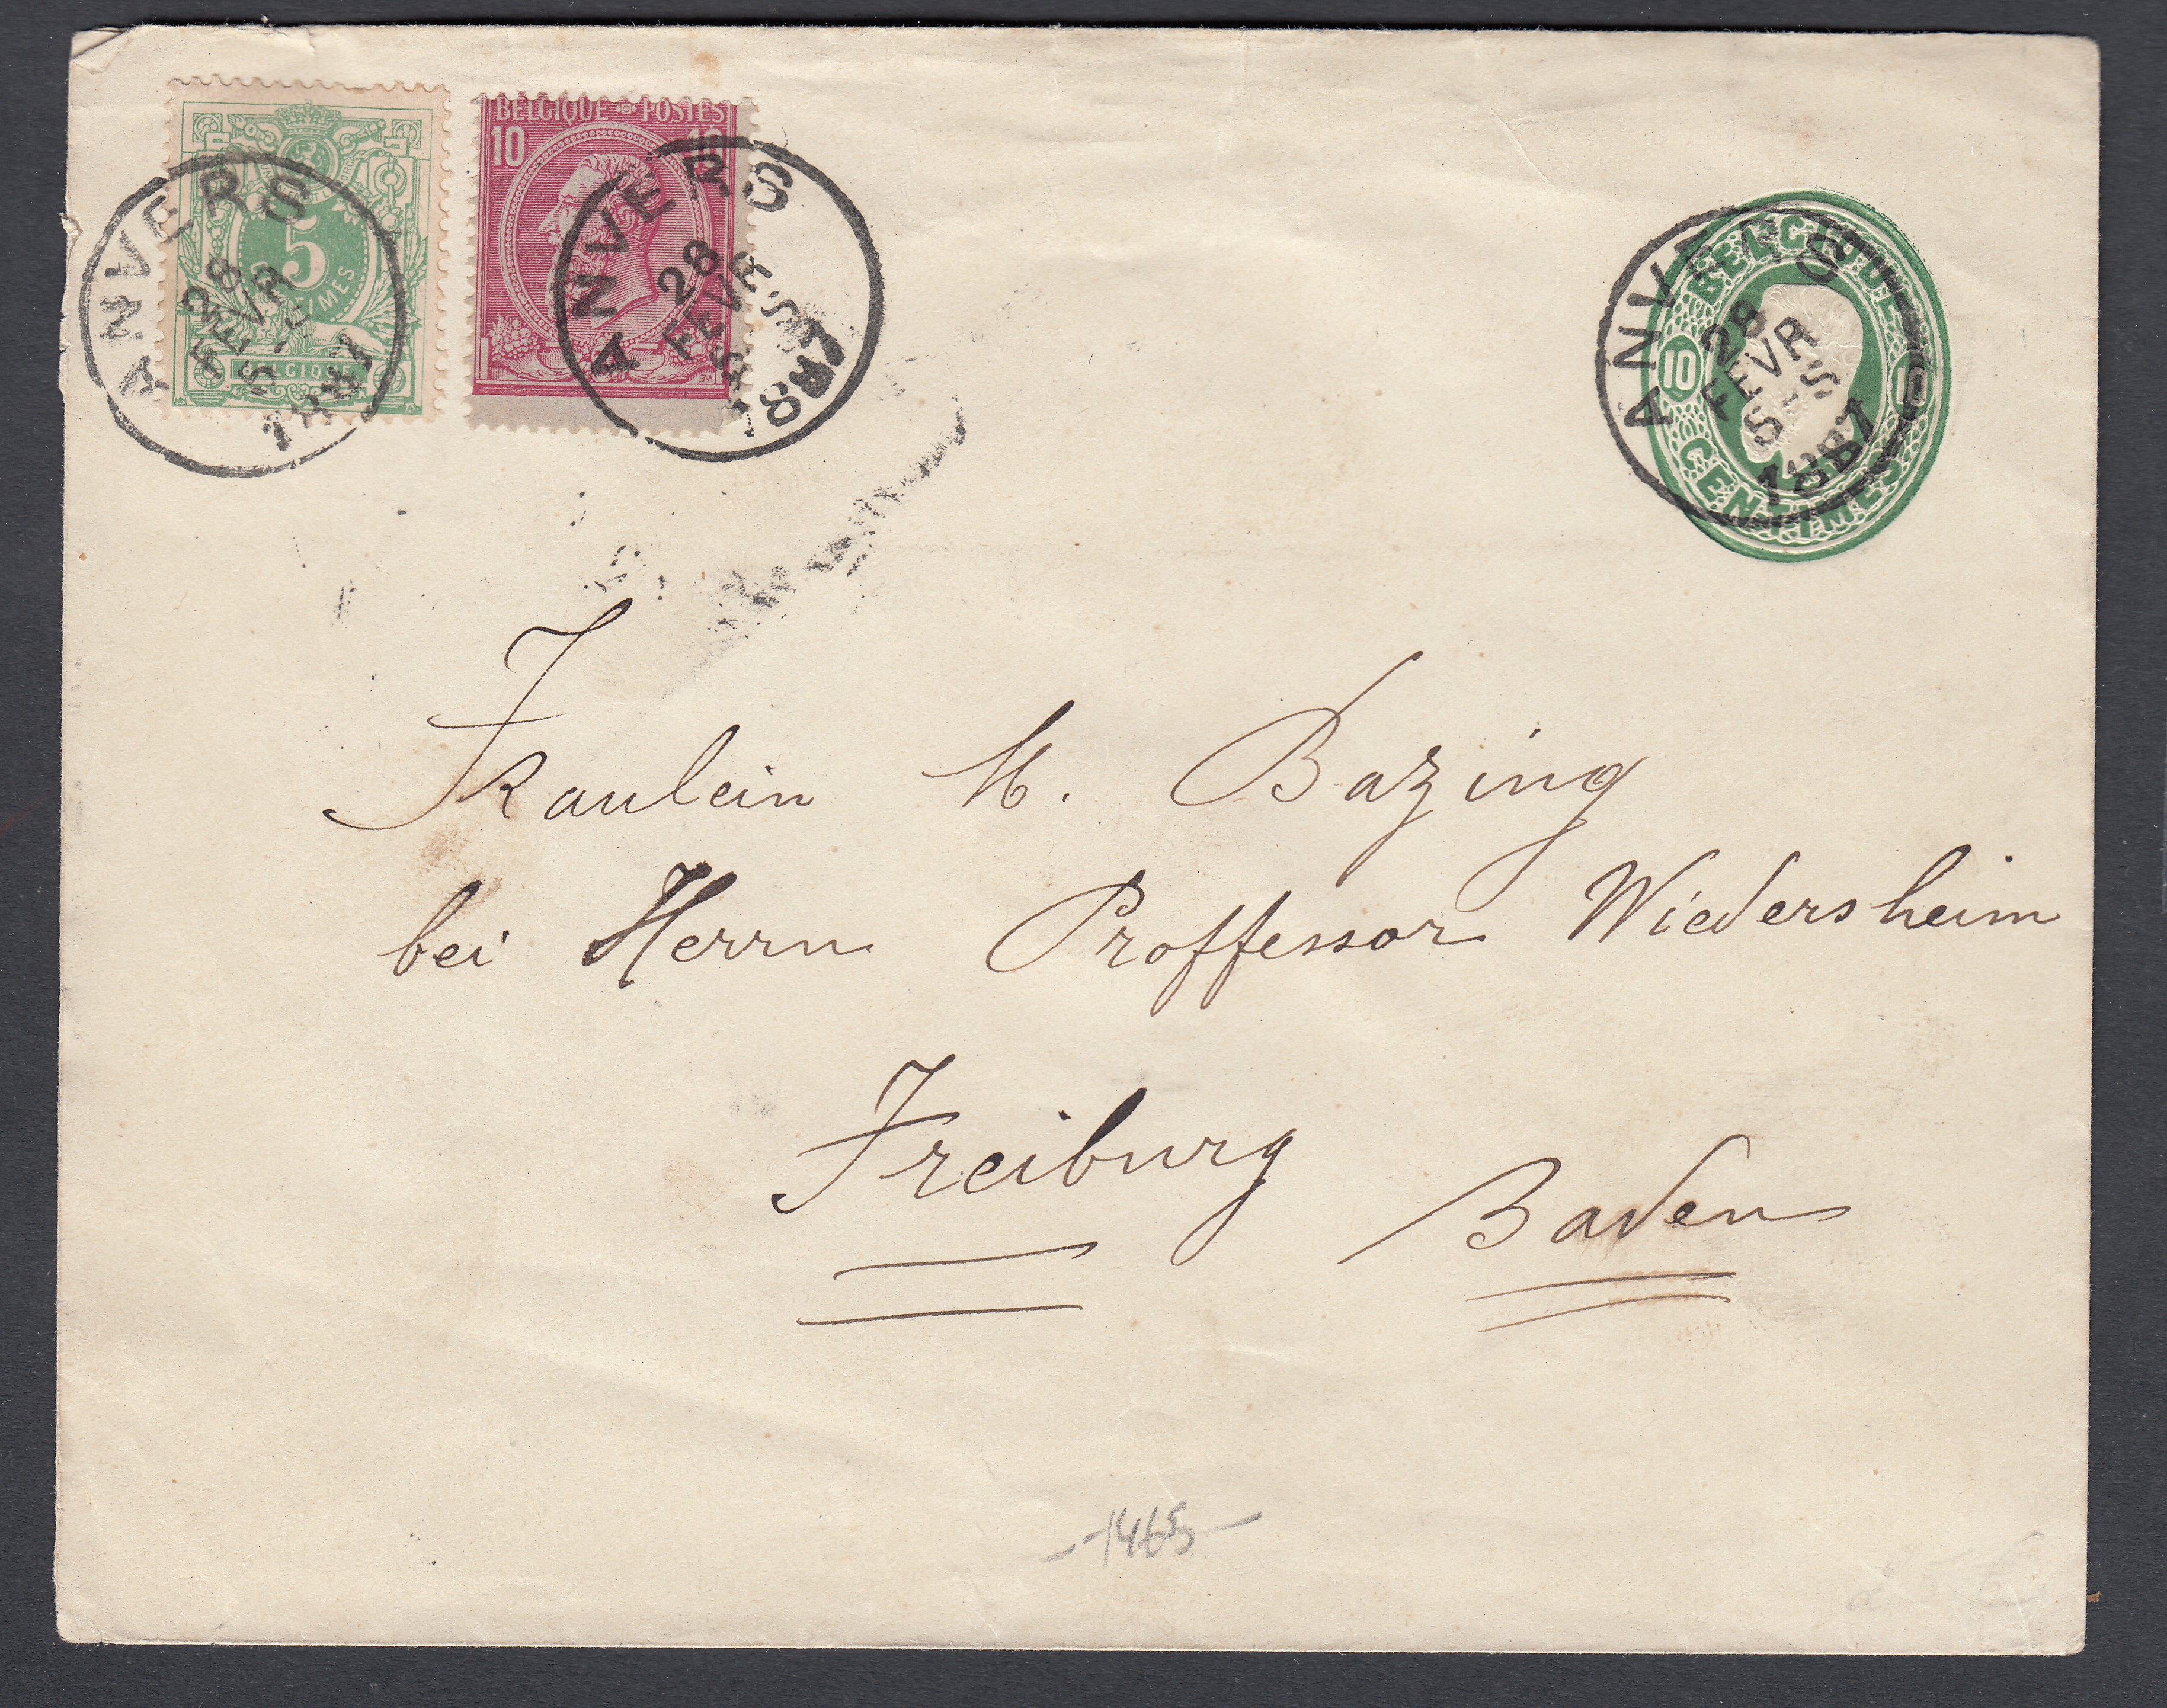 5
CENTIMES
BELGIQUE
BELGIQUE POSTES
10 10
ANVERS
28
FEVR
5-S
1887
ANVERS
28
FEVR
5-S
1887
BELGIQUE
10 10
CENTIMES
ANVERS
28
FEVR
5-S
1887
Fraulein M. Bazing
bei Herrn Proffessor Wiedersheim
Freiburg
Baden
-1465-